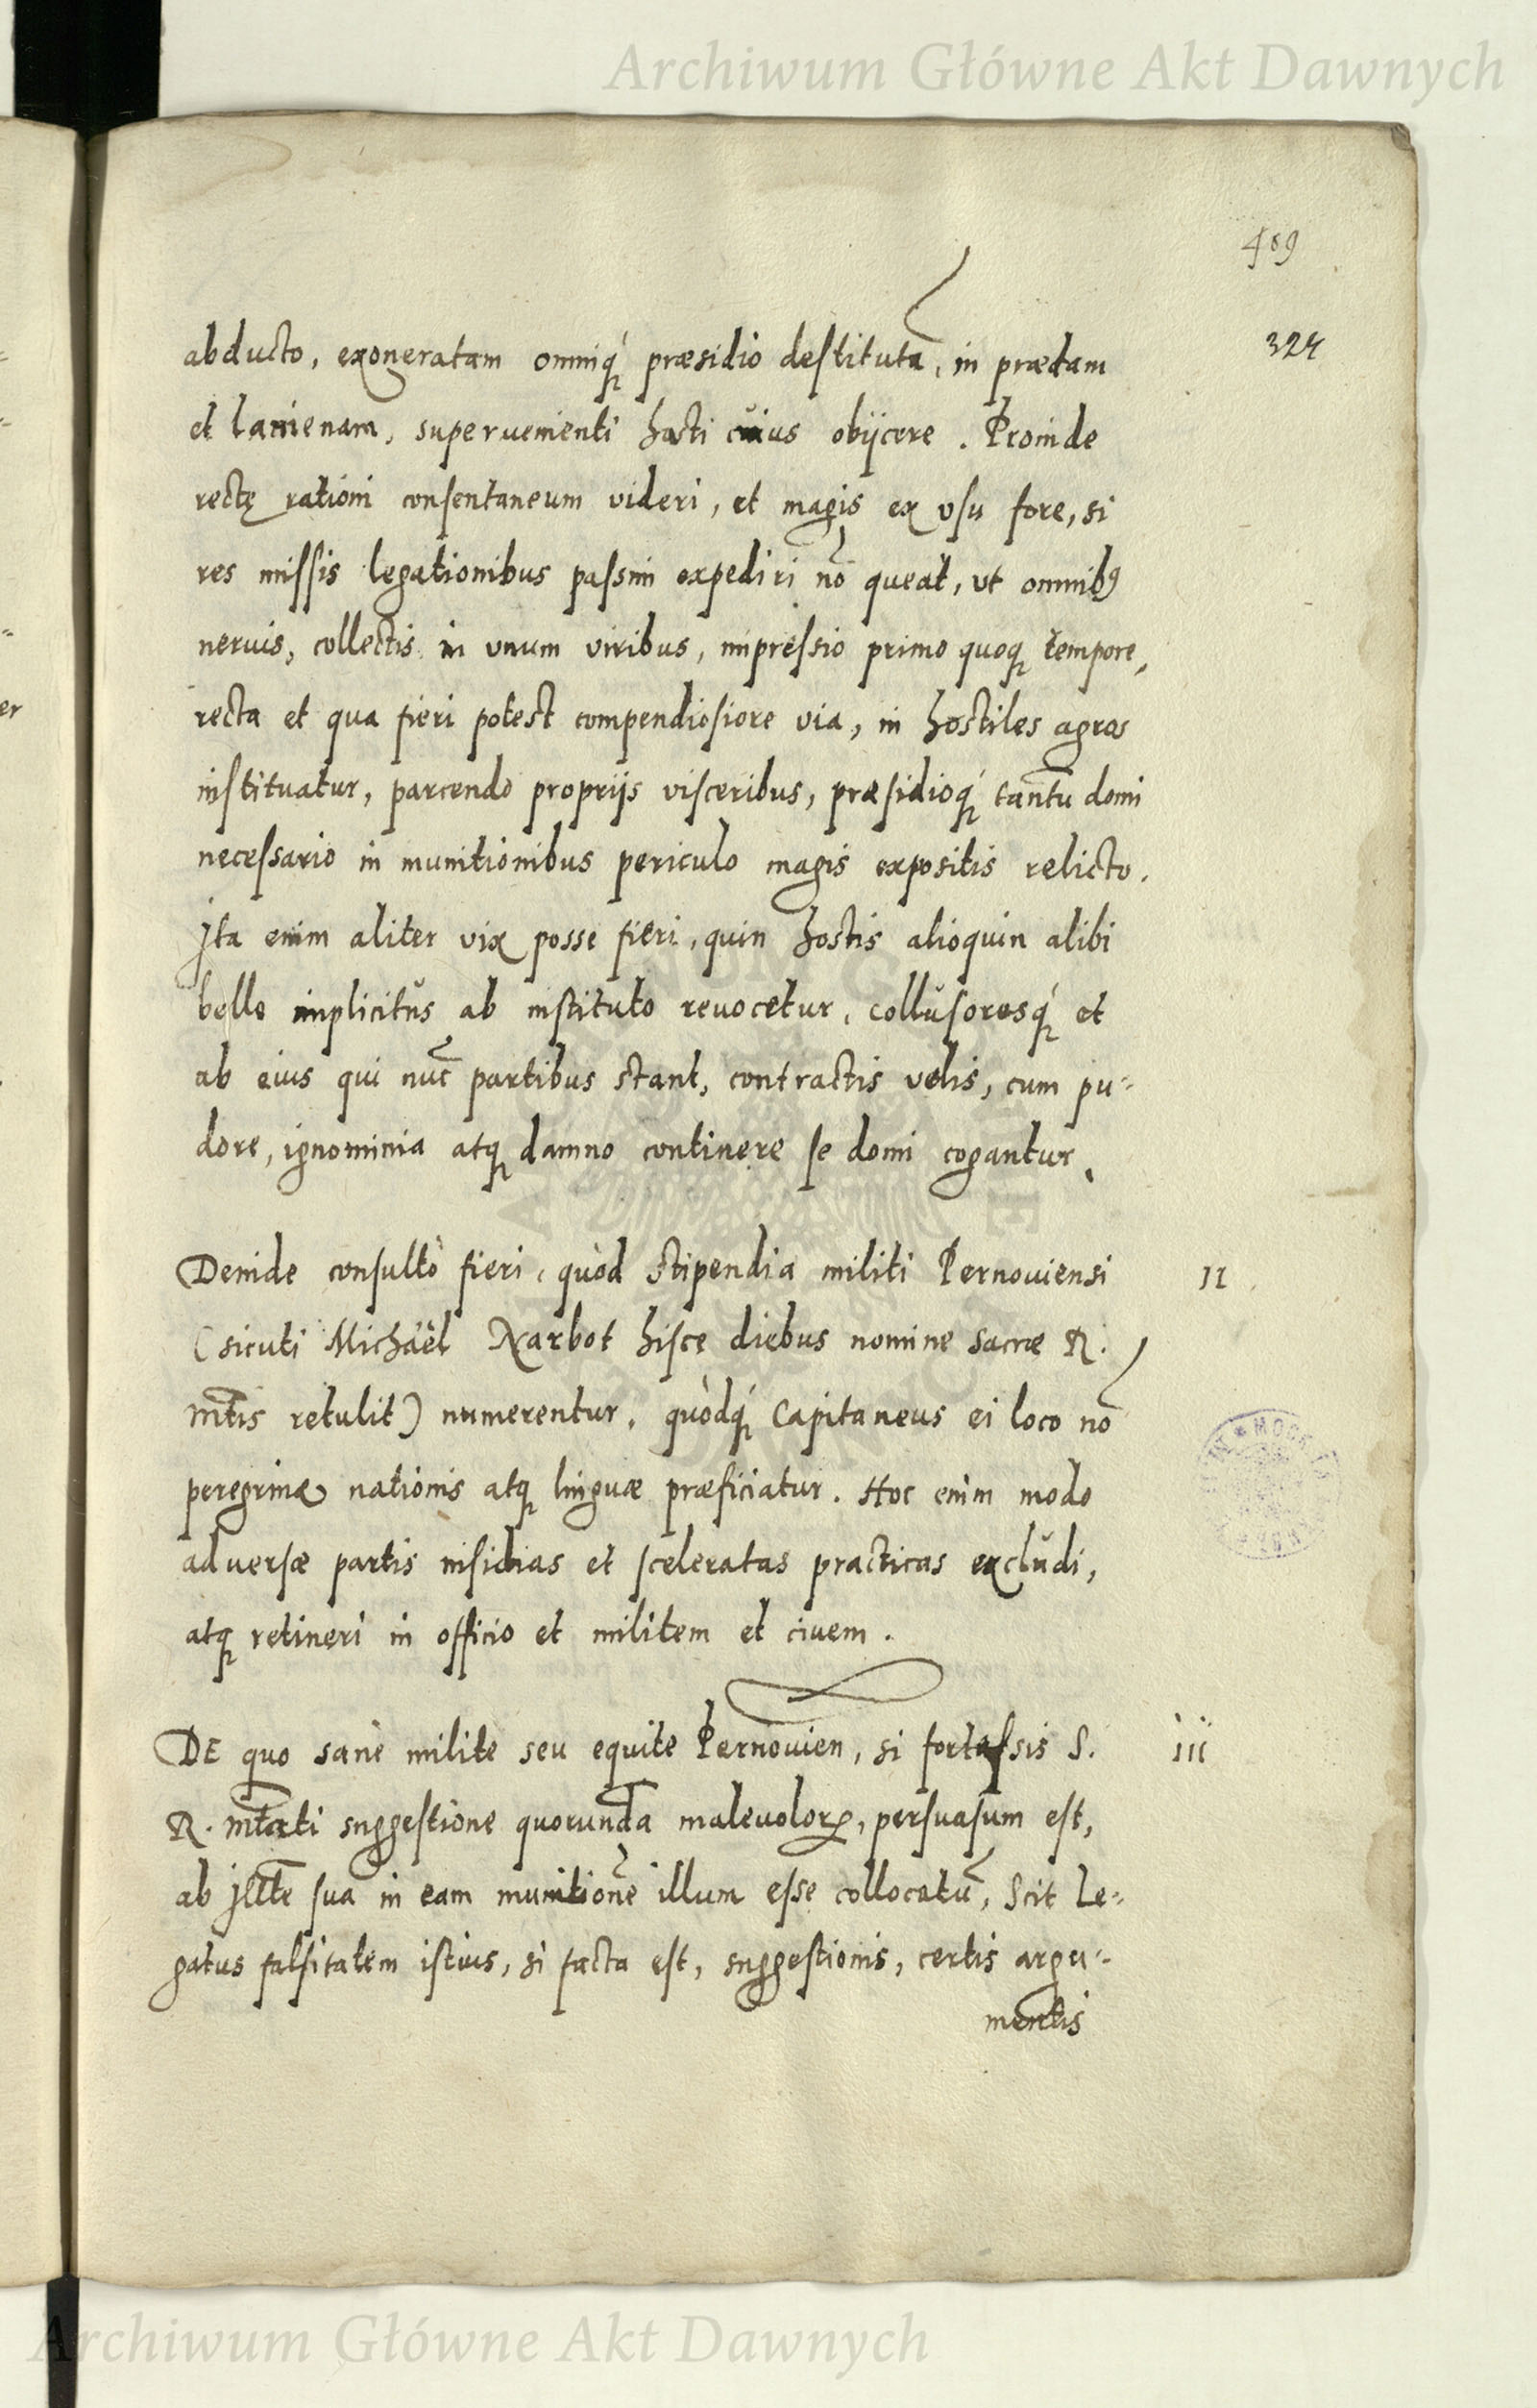 Archiwum Główne Akt Dawnych
489
324
abducto, exoneratam omniq́ꝫ præsidio destitutā, in prædam
et lanienam, superuenienti hosti cuius obijcere. Proinde
rectę rationi consentaneum videri, et magis ex vsu fore, si
res missis legationibus passim expediri nō queat, vt omnibꝰ
neruis, collectis in vnum viribus, impressio primo quoqꝫ tempore,
recta et qua fieri potest compendiosiore via, in hostiles agros
instituatur, parcendo proprijs visceribus, præsidioq́ꝫ tantū domi
necessario in munitionibus periculo magis expositis relicto.
Ita enim aliter vix posse fieri, quin hostis alioquin alibi
bello implicitus ab instituto reuocetur, collusoresq́ꝫ et
ab eius qui nūc partibus stant, contractis velis, cum pu-
dore, ignominia atqꝫ damno continere se domi cogantur.
Deinde consultò fieri, quòd stipendia militi Pernouiensi
II
(sicuti Michaël Narbot hisce diebus nomine sacræ R.
Mtis retulit) numerentur, quòdq́ꝫ Capitaneus ei loco nō
peregrinæ nationis atqꝫ linguæ præficiatur. Hoc enim modo
aduersæ partis insidias et sceleratas practicas excludi,
atqꝫ retineri in officio et militem et ciuem.
DE quo sanè milite seu equite Pernouien, si fortassis S.
iii
R. Mtati suggestione quorundā maleuoloꝝ, persuasum est,
ab Illte sua in eam munitionē illum esse collocatū, Scit Le-
gatus falsitatem istius, si facta est, suggestionis, certis argu-
mentis
Archiwum Główne Akt Dawnych